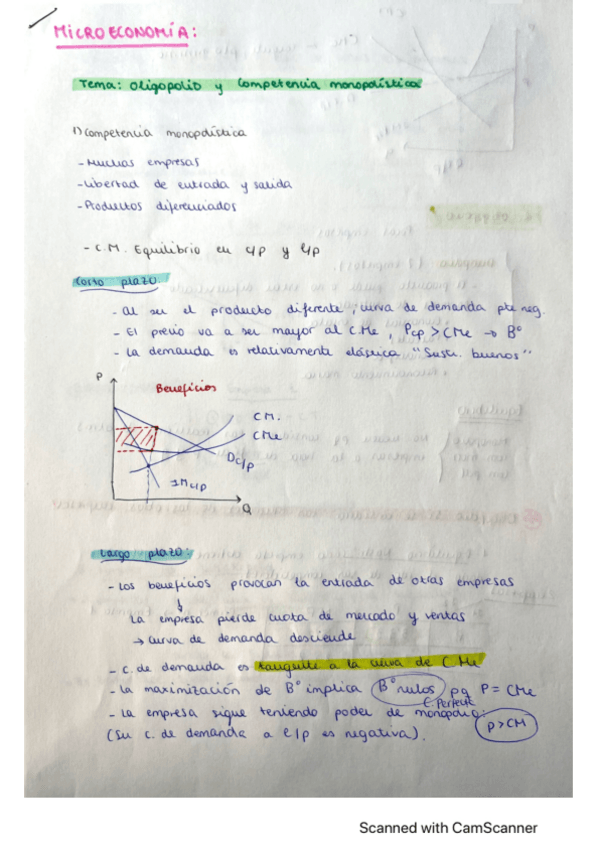 MICROECONOMÍA:
Tema: Oligopolio y Competencia monopolística
1) Competencia monopolística
- Muchas empresas
- Libertad de entrada y salida
- Productos diferenciados
- C.M. Equilibrio en c/p y l/p
Corto plazo:
- Al ser el producto diferente, curva de demanda pte neg.
- El precio va a ser mayor al C.Me, Pcp > CMe → Bº
- La demanda es relativamente elástica "Susti. buenos"
P
Beneficios
CM.
CMe
Dc/p
IMc/p
Q
Largo plazo:
- Los beneficios provocan la entrada de otras empresas
La empresa pierde cuota de mercado y ventas
→ curva de demanda desciende
- C. de demanda es tangente a la curva de C.Me
- La maximización de Bº implica Bº nulos pq P = CMe
C. Perfect
- La empresa sigue teniendo poder de monopolio:
(Su c. de demanda a l/p es negativa).
P>CM
Scanned with CamScanner